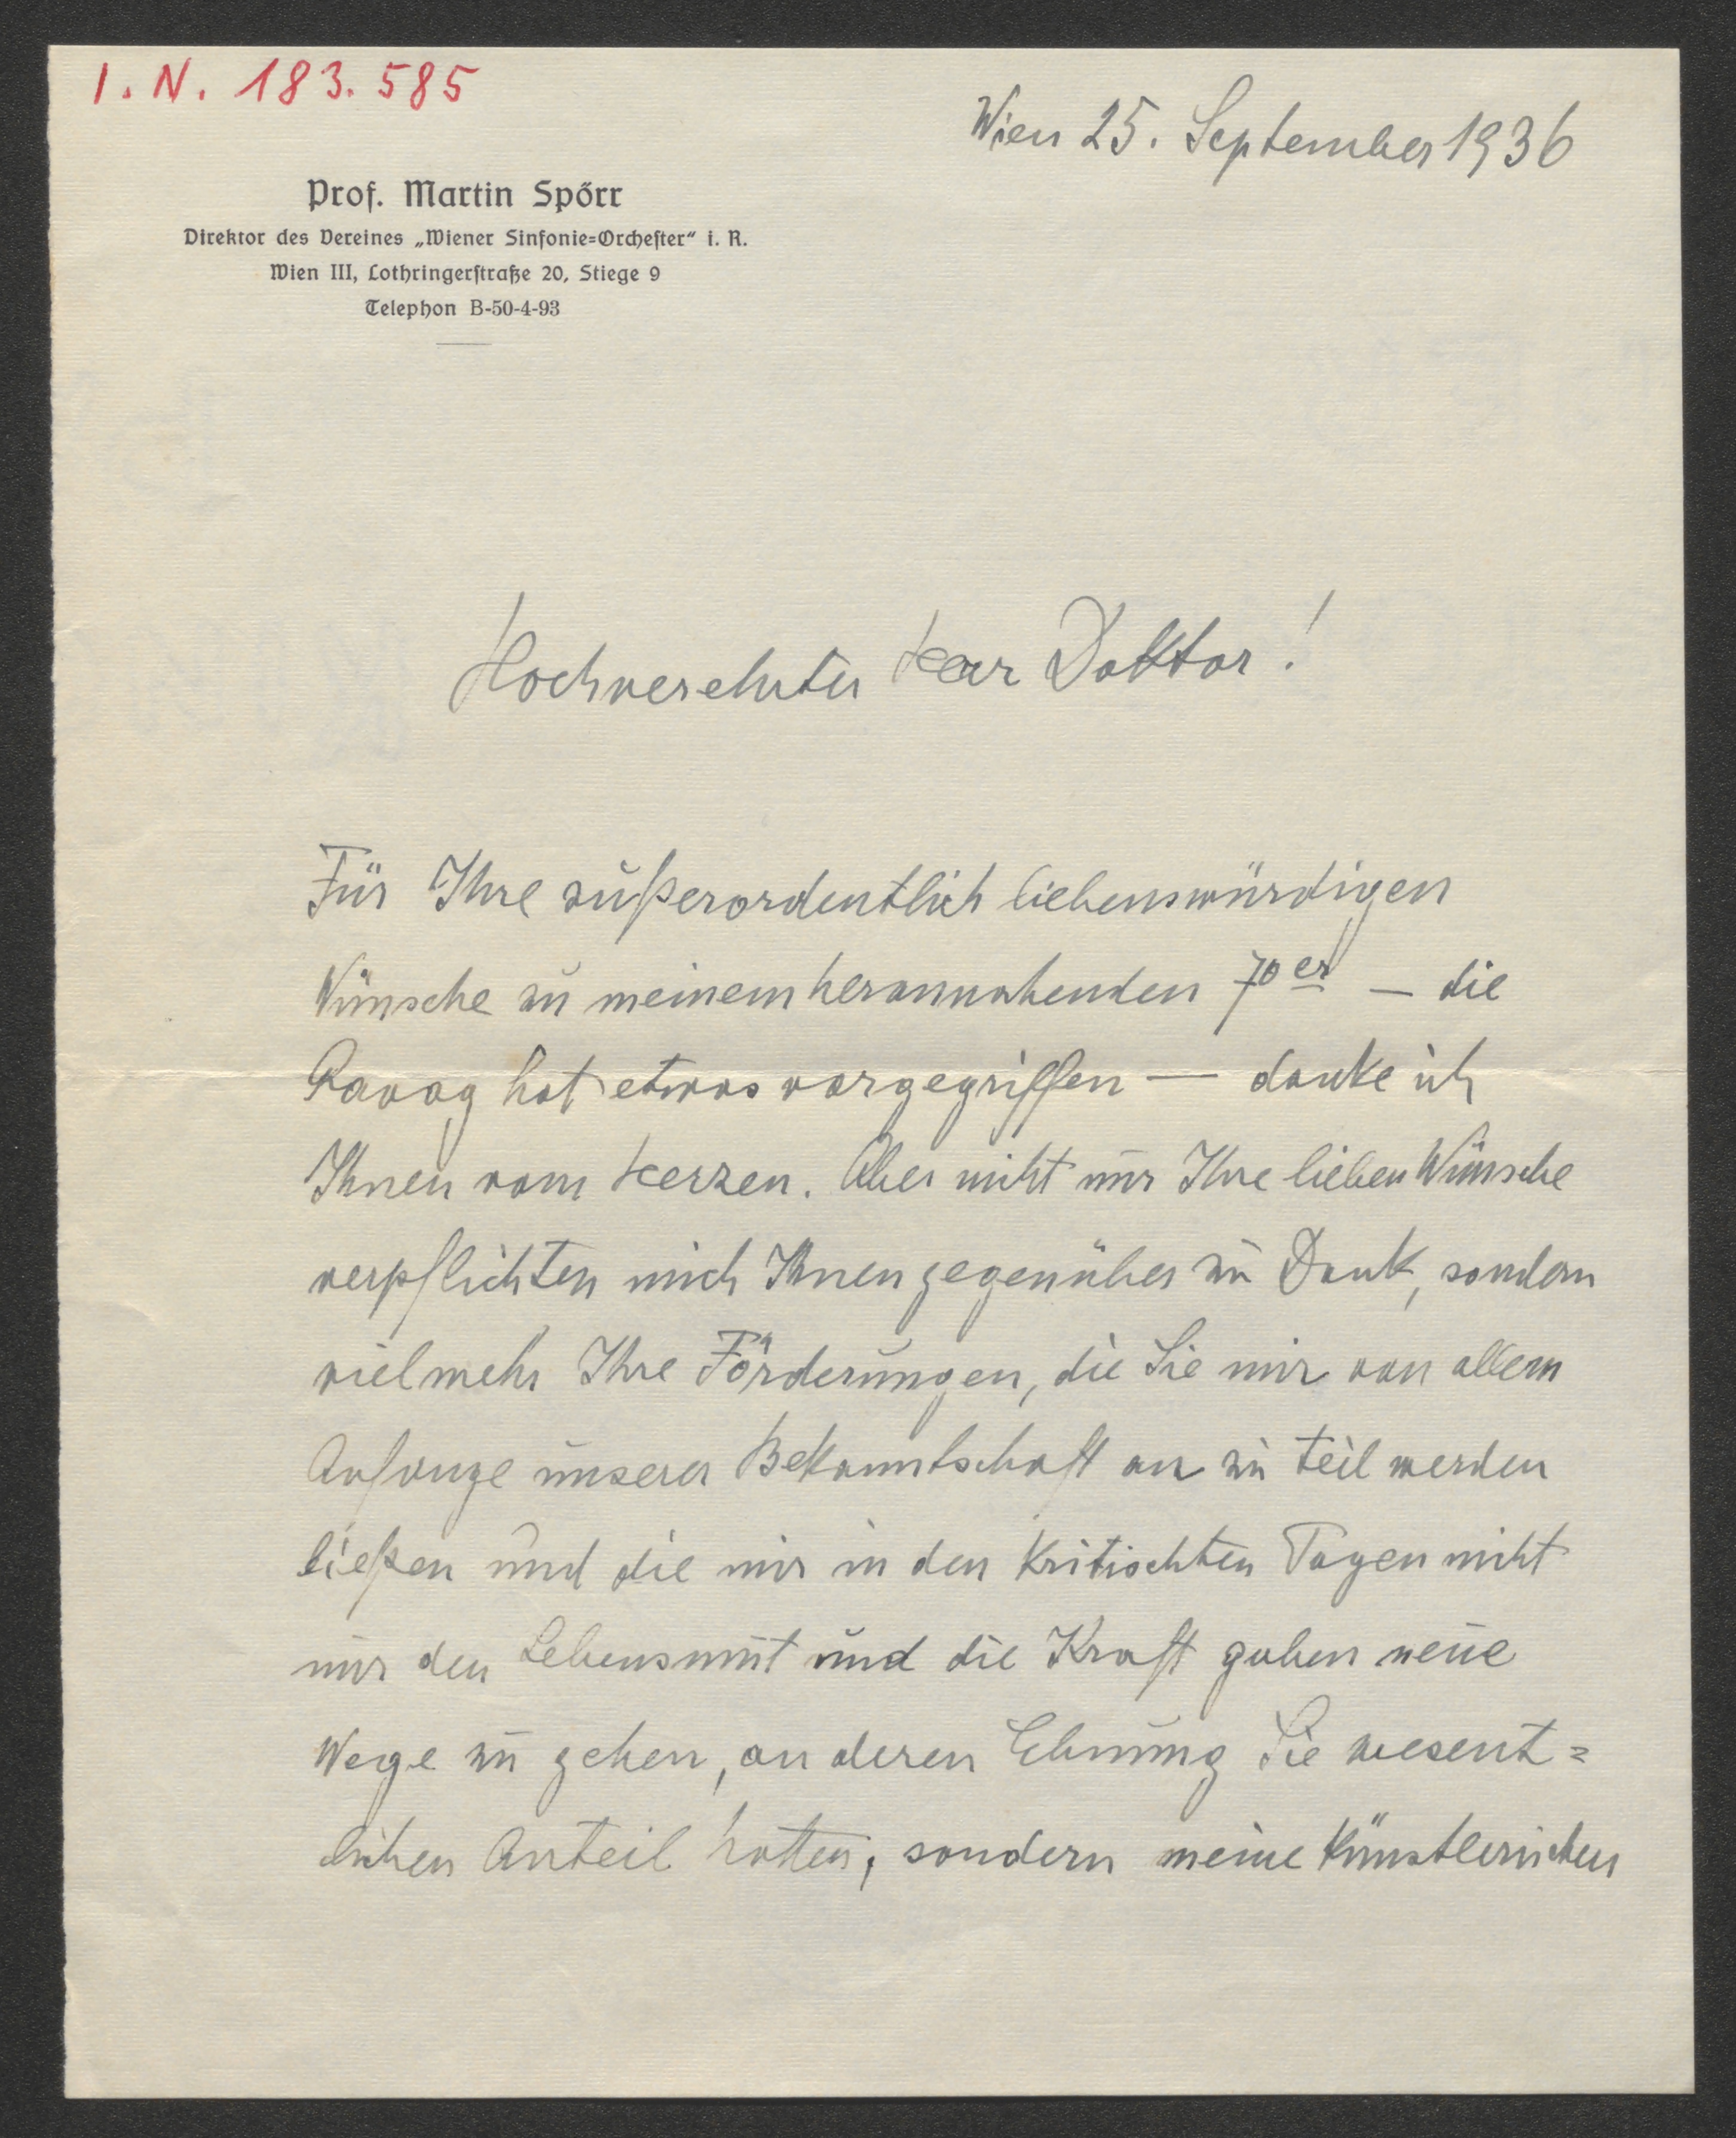 I. N. 183.585
Wien 25. September 1936
Prof. Martin Spörr
Direktor des Vereines „Wiener Sinfonie=Orchester“ i. R.
Wien III, Lothringerstraße 20, Stiege 9
Telephon B-50-4-93
Hochverehrter Herr Doktor!
Für Ihre außerordentlich liebenswürdigen
Wünsche zu meinem herannahenden 70er – die
Ravag hat etwas vorgegriffen — danke ich
Ihnen vom Herzen. Aber nicht nur Ihre lieben Wünsche
verpflichten mich Ihnen gegenüber zu Dank, sondern
vielmehr Ihre Förderungen, die Sie mir von allem
Anfange unserer Bekanntschaft an zu teil werden
ließen und die mir in den kritischten Tagen nicht
nur den Lebensmut und die Kraft gaben neue
Wege zu gehen, an deren Ebnung Sie wesent=
lichen Anteil hatten, sondern meine künstlerischen